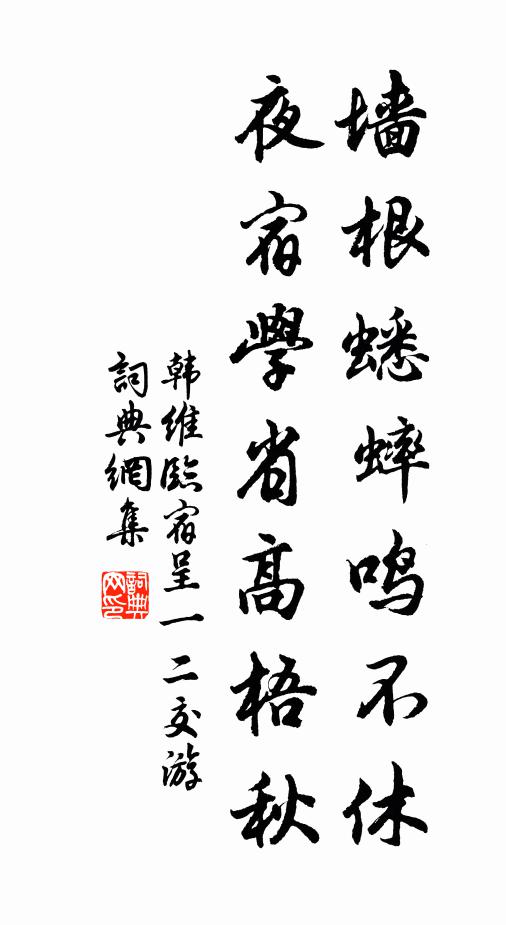 墙根蟋蟀鸣不休
夜宿學省高梧秋
韩维臨宿呈一二交游
詞典網集
詞典網印